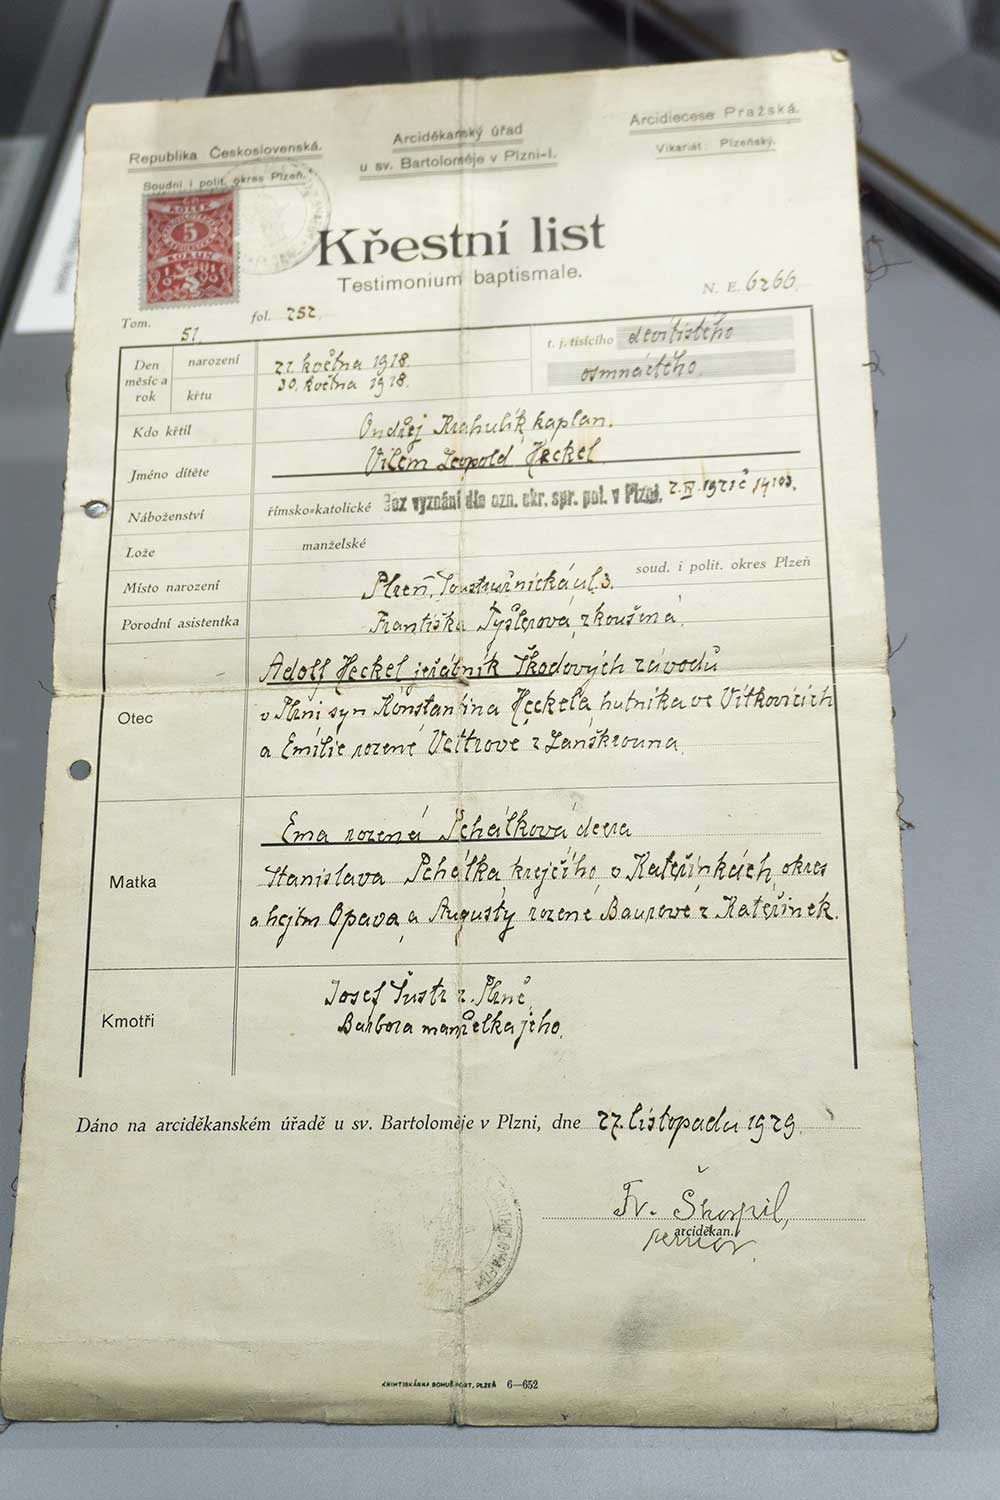 Republika Československá.
Soudní i polit. okres Plzeň.
Arciděkanský úřad
u sv. Bartoloměje v Plzni-I.
Arcidiecese Pražská.
Vikariát: Plzeňský.
KOLEK
5
KORUN
1919
Křestní list
Testimonium baptismale.
N. E. 6266.
Tom. 51.
fol. 252.
Den měsíc a rok
narození 21. května 1918.
křtu 30. května 1918.
t. j. tisícího devítistého
osmnáctého.
Kdo křtil Ondřej Krahulík kaplan.
Jméno dítěte Vilém Leopold Heckel
Náboženství římsko-katolické Bez vyznání dle ozn. okr. spr. pol. v Plzni. 2. IV. 1921 č 14103.
Lože manželské
Místo narození Plzeň, Soustružnická ul. 3. soud. i polit. okres Plzeň
Porodní asistentka Františka Tyslerová, zkoušená.
Otec
Adolf Heckel jeřábník Škodových závodů
v Plzni syn Konstantina Heckela hutníka ve Vítkovicích
a Emilie rozené z Lanškrouna.
Matka
Ema rozená Pchálková dcera
Stanislava Pchálka krejčího v Kateřinkách, okres
a hejtm Opava, a Augusty rozené Baurové z Kateřinek.
Kmotři
Josef Šustr z Plzně,
Barbora manželka jeho.
Dáno na arciděkanském úřadě u sv. Bartoloměje v Plzni, dne 27. listopadu 1929.
Fr. Škorpil,
arciděkan.
senior.
KNIHTISKÁRNA BOHUŠ PORT, PLZEŇ 6—652